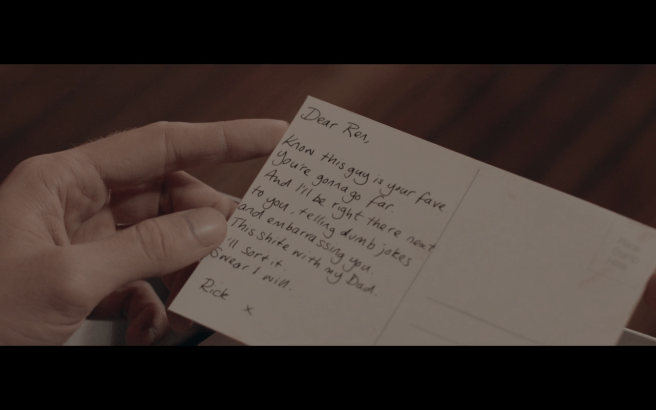 Dear Ren,
Know this guy is your fave
You're gonna go far.
And I'll be right there next
to you, telling dumb jokes
and embarrassing you
This shite with my Dad
I'll sort it.
Swear I will.
Rick
x